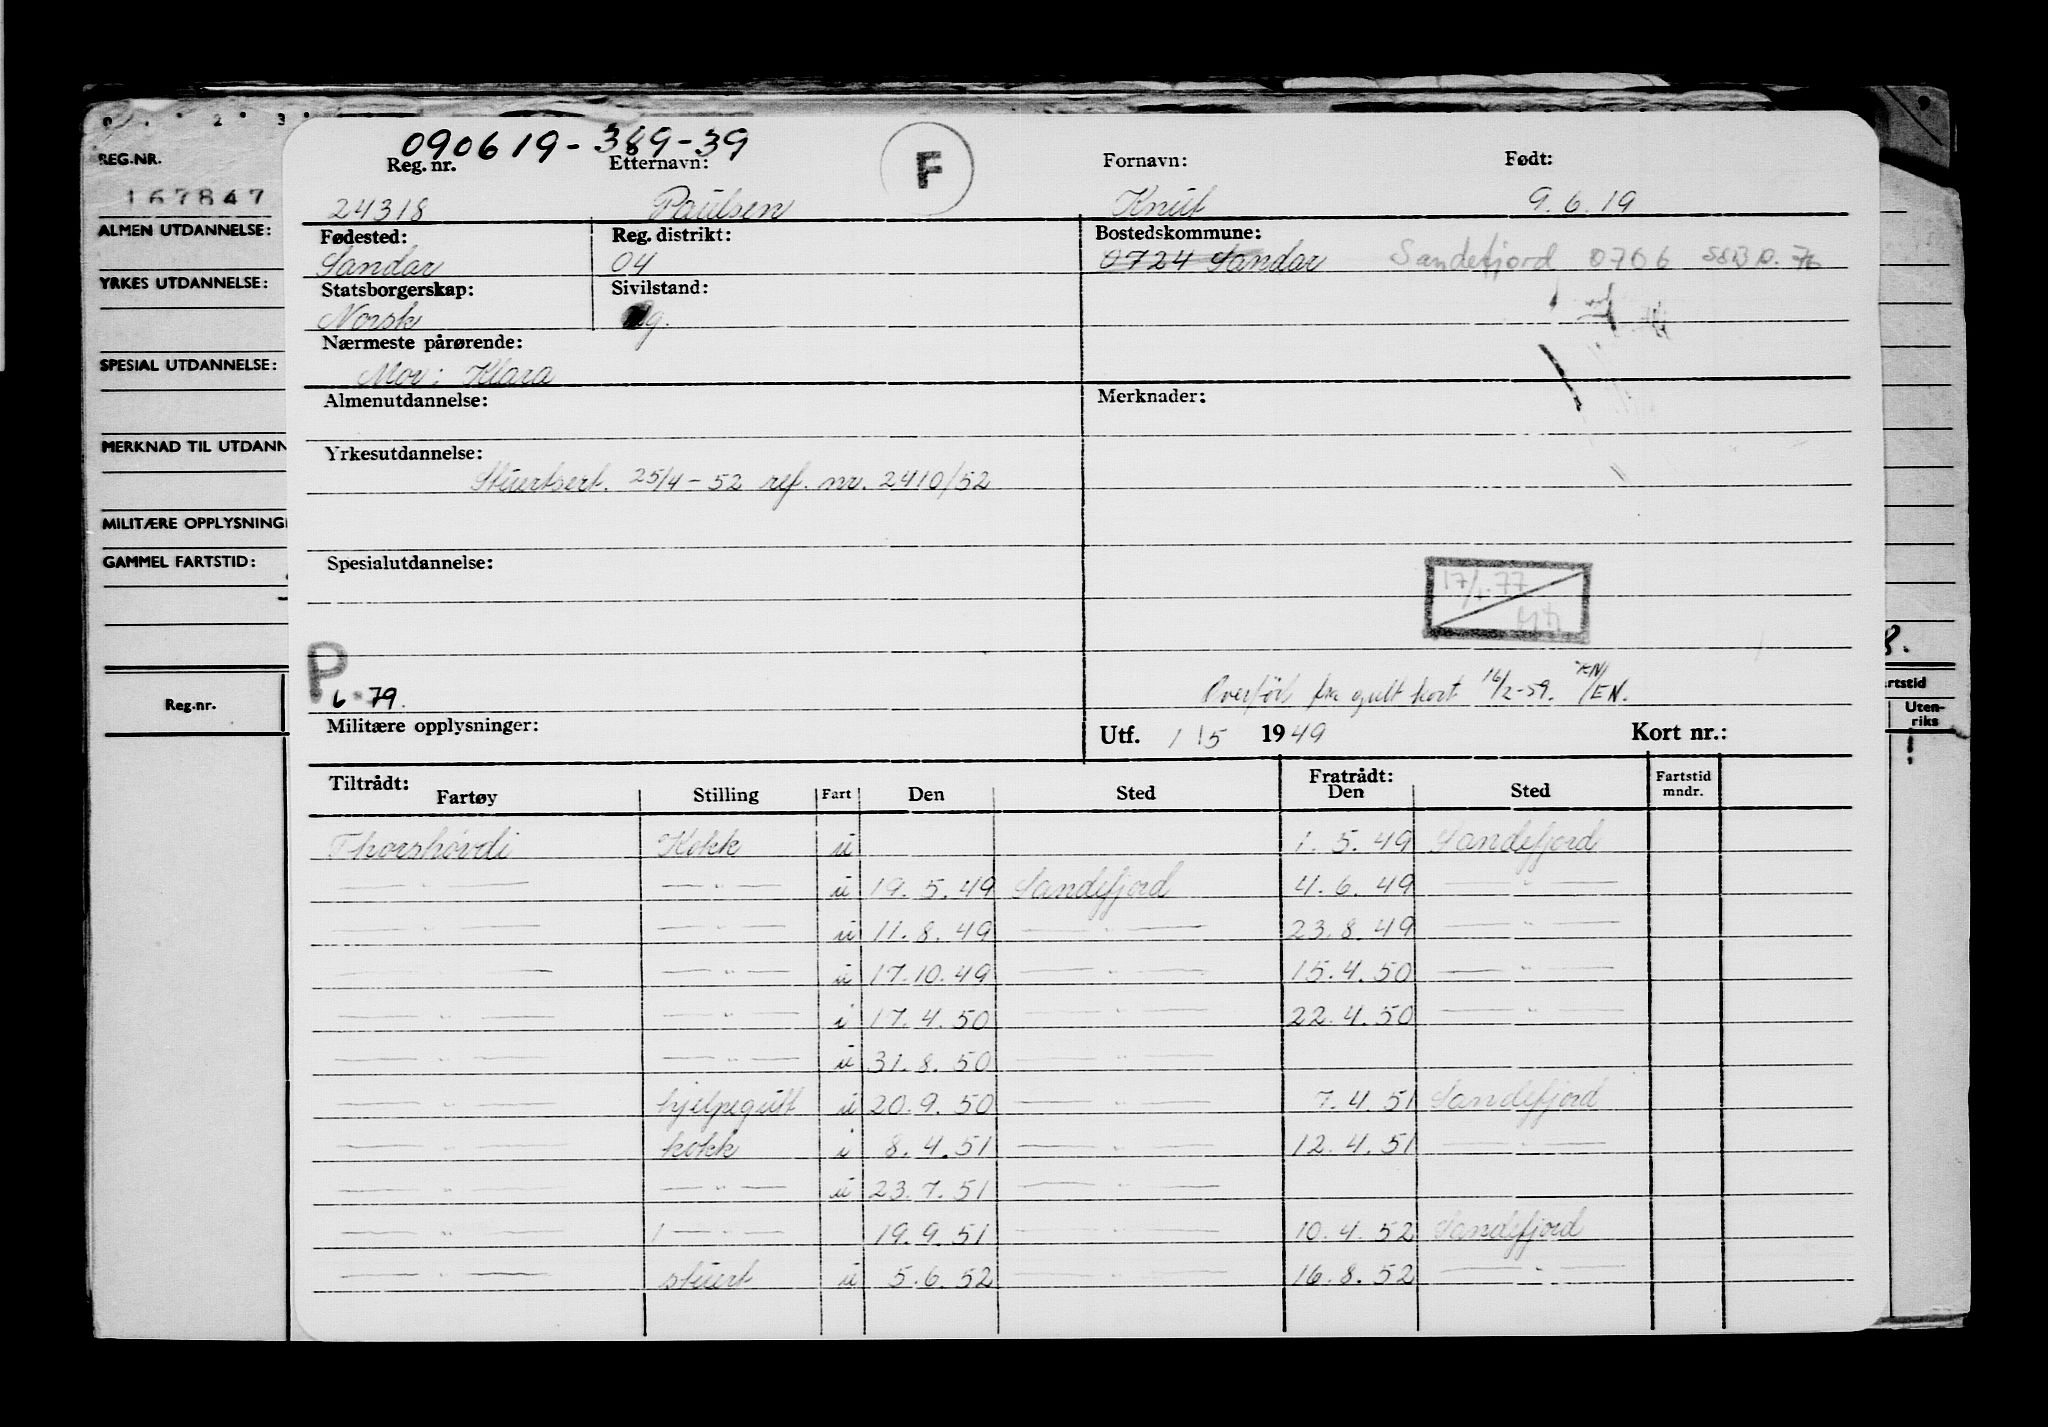 090619-389-39
F
Reg. nr. Etternavn: Fornavn: Født:
24318 Paulsen Knut 9.6.19
Fødested: Reg. distrikt: Bostedskommune:
Sandar 04 0724 Sandar Sandefjord 0706 SSB D. 76
Statsborgerskap: Sivilstand:
Norsk
Nærmeste pårørende:
Mor: Klara
Almenutdannelse: Merknader:
Yrkesutdannelse:
Stuertsert. 25/4-52 ref. nr. 2410/52
Spesialutdannelse:
17/1.77
P
6-79.
Overført fra gult kort 16/2-59. KN/EN.
Militære opplysninger: Utf. 1/5 1949 Kort nr.:
Tiltrådt: Fratrådt:
Fartøy Stilling Fart Den Sted Den Sted Fartstid mndr.
Thorshøvdi Kokk u 1. 5. 49 Sandefjord
—"— —"— u 19. 5. 49 Sandefjord 4. 6. 49 —"—
—"— —"— u 11. 8. 49 —"— 23. 8. 49 —"—
—"— —"— u 17. 10. 49 —"— 15. 4. 50 —"—
—"— —"— i 17. 4. 50 —"— 22. 4. 50 —"—
—"— —"— u 31. 8. 50 —"—
—"— hjelpegutt u 20. 9. 50 —"— 7. 4. 51 Sandefjord
—"— kokk i 8. 4. 51 —"— 12. 4. 51 —"—
—"— —"— u 23. 7. 51 —"—
—"— 1 —"— 19. 9. 51 —"— 10. 4. 52 Sandefjord
—"— stuert u 5. 6. 52 —"— 16. 8. 52 —"—
REG.NR.
167847
ALMEN UTDANNELSE:
YRKES UTDANNELSE:
SPESIAL UTDANNELSE:
MERKNAD TIL UTDANN
MILITÆRE OPPLYSNING
GAMMEL FARTSTID:
Reg.nr.
8.
rtstid
Uten-
riks